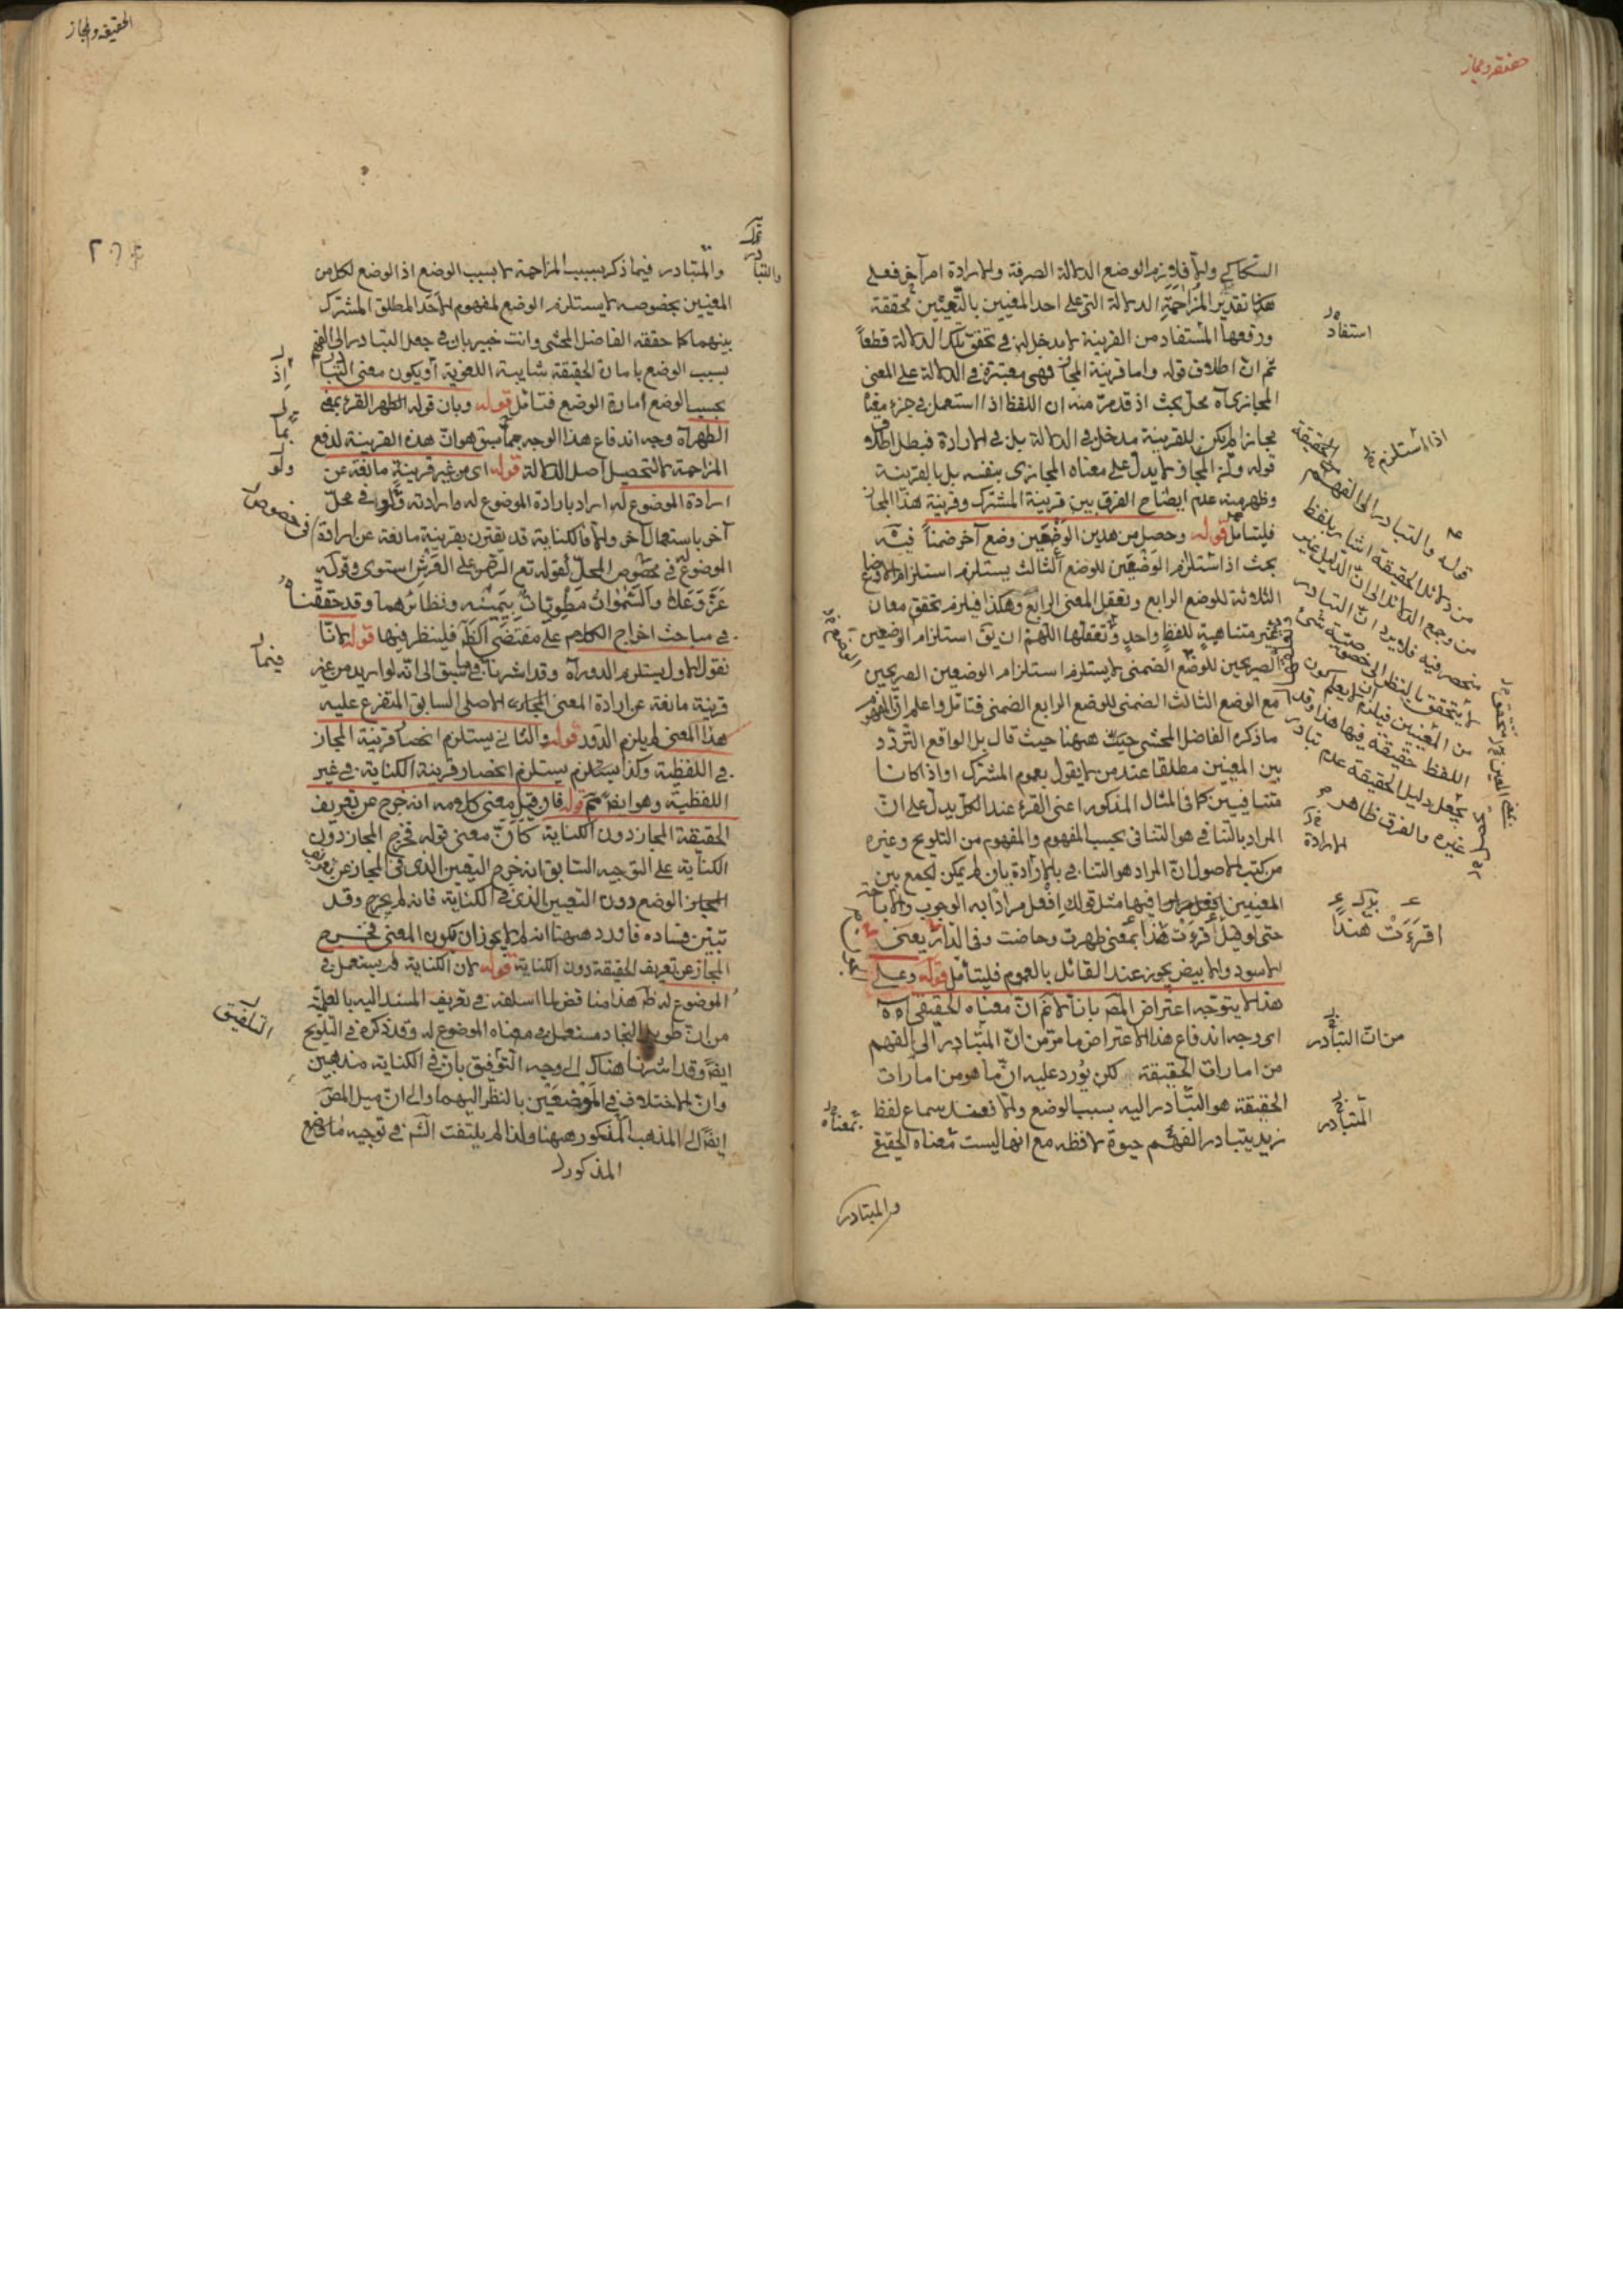 حقيقة ومجاز
السكاكي والا فلازم الوضع الدلالة الصرفة والارادة امر آخر فعلى
هذا تقدير المزاحمة الدلالة التي على احد المعنيين بالتعيين محققة
ورفعها المستفاد من القرينة لا مدخل له في تحقق تلك الدلالة قطعاً
ثم ان اطلاق قوله واما قرينة المجاز فهي معتبرة في الدلالة على المعنى
المجازي آه محل بحث اذ قد مر منه ان اللفظ اذا استعمل في جزء معناه
مجازا لم يكن للقرينة مدخل في الدلالة بل في الارادة فبطل اطلاق
قوله وكذا المجاز لا يدل على معناه المجازي بنفسه بل بالقرينة
وظهر منه عدم ايضاح الفرق بين قرينة المشترك وقرينة هذا المجاز
فليتأمل قوله وحصل من هذين الوضعين وضع آخر ضمناً فيه
بحث اذ استلزام الوضعين للوضع الثالث يستلزم استلزام الاوضاع
الثلاثة للوضع الرابع وتعقل المعنى الرابع وهكذا فيلزم تحقق معان
غير متناهية للفظ واحد وتعقلها اللهم ان يق استلزام الوضعين
الصريحين للوضع الضمني لا يستلزم استلزام الوضعين الصريحين
مع الوضع الثالث الضمني للوضع الرابع الضمني فتأمل واعلم ان المفهوم
ما ذكره الفاضل المحشي ههنا حيث قال بل الواقع التردد
بين المعنيين مطلقا عند من لا يقول بعموم المشترك او اذا كانا
متنافيين كما في المثال المذكور اعني القرء عند الكل يدل على ان
المراد بالتنافي هو التنافي بحسب المفهوم والمفهوم من التلويح وغيره
من كتب الاصول ان المراد هو التنافي بالارادة بان لم يمكن الجمع بين
المعنيين فيها مثل قولك افعل مرادا به الوجوب والاباحة
حتى لو قيل أقرءت هند بمعنى طهرت وحاضت وفي الدار يعني
الاسود والابيض يجوز عند القائل بالعموم فليتأمل قوله وعلى
هذا لا يتوجه اعتراض المص بانا لا نم ان معناه الحقيقي آه
اي وجه اندفاع هذا الاعتراض ما مر من ان المتبادر الى الفهم
من امارات الحقيقة لكن يورد عليه ان ما هو من امارات
الحقيقة هو التبادر اليه بسبب الوضع والا فعند سماع لفظ
زيد يتبادر الفهم حيوة لافظه مع انها ليست معناه الحقيقي
والمتبادر
استفاد
اذا استلزم
قوله والتبادر الى الفهم
من دلائل الحقيقة اشار بلفظ
من وجمع الدلائل الى ان الدليل غير
منحصر فيه فلا يرد ان التبادر
لا يتحقق بالنظر الى خصوصية شيء
من المعنيين فيلزم ان لا يعلم كون
اللفظ حقيقة فيها هذا وقد
يجعل دليل الحقيقة عدم تبادر
غيره والفرق ظاهر
الارادة
اقرءت هند
من ان التبادر
المتبادر
بمعناه
الحقيقة والمجاز
٢٠٦
والمتبادر فيما ذكر بسبب المزاحمة لا بسبب الوضع اذ الوضع لكل من
المعنيين بخصوصه لا يستلزم الوضع لمفهوم الاحد المطلق المشترك
بينهما كما حققه الفاضل المحشي وانت خبير بان في جعل التبادر الى الفهم
بسبب الوضع بامارة الحقيقة شايبة اللغوية أو يكون معنى التبادر
بحسب الوضع امارة الوضع فتأمل قوله وبان قوله الطهر القرء بمعنى
الطهر آه وجه اندفاع هذا الوجه بما سبق هو ان هذه القرينة لدفع
المزاحمة لا لتحصيل اصل الدلالة قوله اي من غير قرينة مانعة عن
ارادة الموضوع له اراد بارادة الموضوع له ما ارادته ولو في محل
آخر باستعمال آخر والا فالكناية قد يقترن بقرينة مانعة عن ارادة
الموضوع له في خصوص المحل لقوله تع الرحمن على العرش استوى وقوله
عز وعلا والسموات مطويات بيمينه ونظائرهما وقد حققناه
في مباحث اخراج الكلام على مقتضى الظ فلينظر فيها قوله لانا
نقول الاول يستلزم الدور آه وقد اشرنا فيما سبق الى انه لو اريد من غير
قرينة مانعة عن ارادة المعنى الاصلي السابق المتفرع عليه
هذا المعنى لم يلزم الدور قوله والثاني يستلزم انحصار قرينة المجاز
في اللفظية وكذا يستلزم انحصار قرينة الكناية في غير
اللفظية وهو ايضا مم قوله فان قيل معنى كلامه انه خرج عن تعريف
الحقيقة المجاز دون الكناية كأن معنى قوله فخرج المجاز دون
الكناية على التوجيه السابق انه خرج التعيين الذي في المجاز عن تعريف
الوضع دون التعيين الذي في الكناية فانه لم يخرج وقد
تبين فساده فاورد ههنا انه لم لا يجوز ان يكون المعنى فخرج
المجاز عن تعريف الحقيقة دون الكناية قوله لان الكناية لم يستعمل في
الموضوع له ظ هذا مناقض لما اسلفه في تعريف المسند اليه بالعلمية
من ان طويل النجاد مستعمل في معناه الموضوع له وقد ذكره في التلويح
ايضا وقد اشرنا هناك الى وجه التوفيق بان في الكناية مذهبين
وان الاختلاف في الموضعين بالنظر اليهما والى ان ميل المص
ايضا الى المذهب المذكور ههنا ولذا لم يلتفت الش في توجيه ما وقع
المذكور
والتبادر
اذ
بما
ولو
في خصوص
فيما
التلفيق